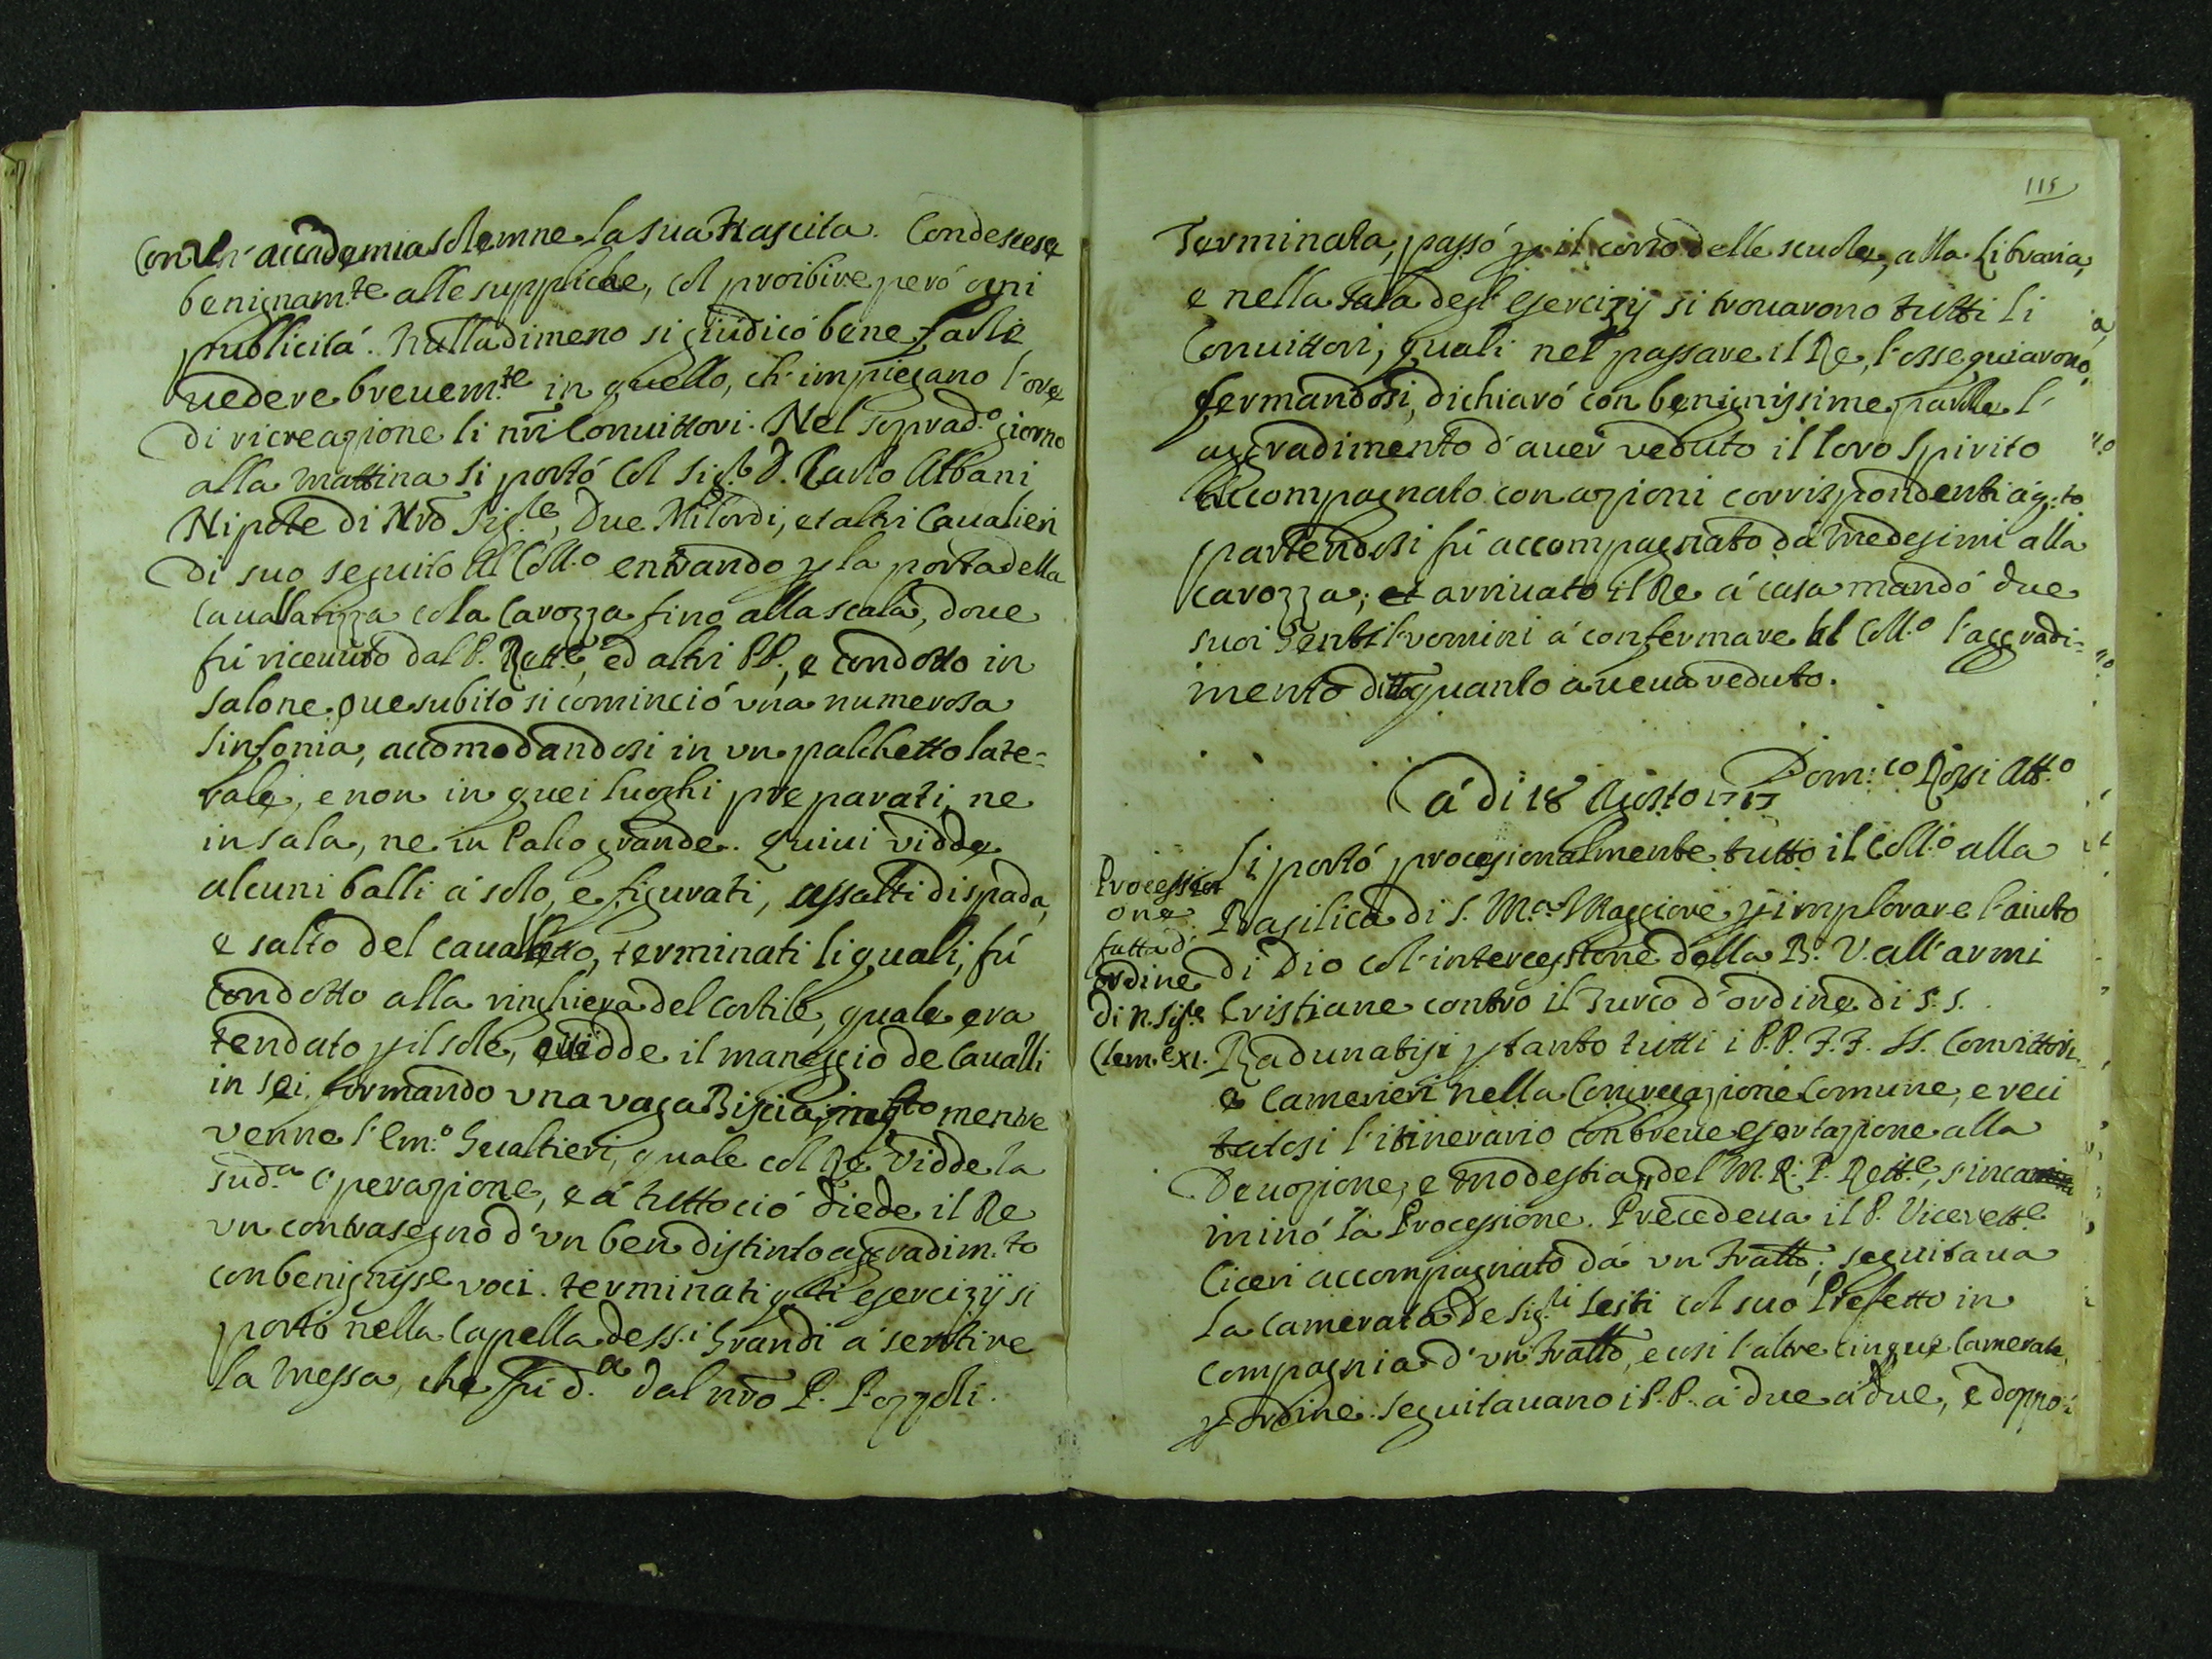 Con Un' accademia solemne la sua Nascita. Condescese
benignam.te alle suppliche, col proibire però ogni
publicità. Nulladimeno si giudicò bene farli
vedere brevem.te in quello, ch' impiegano l'ore
di ricreazione li nri Convittori. Nel soprad.o giorno
alla mattina si portò col Sig.r D. Carlo Albani
Nipote di Nro Sig.re, Due Milordi, et altri Cavalieri
di suo seguito al Coll.o entrando p la porta della
Cavallarizza co la Carozza fino alla scala, dove
fù ricevuto dal P. Rett.e, ed altri PP., e condotto in
salone. Ove subito si cominciò una numerosa
sinfonia, accomodandosi in un palchetto late=
rale, e non in quei luoghi preparati, ne
in sala, ne in Palco grande. Quivi vidde
alcuni balli à solo, e figurati, assalti di spada,
e salto del cavalletto, terminati li quali, fù
condotto alla ringhiera del Cortile, quale era
tendato p il sole, e vidde il maneggio de Cavalli
in sei, formando una vaga Biscia, in q.sto mentre
venne l'Em.o Gualtieri, quale col Re vidde la
sud.a operazione, e à tutto ciò diede il Re
un contrasegno d'un ben distinto aggradim.to
con benigniss.e voci. terminati q.sti esercizij si
portò nella Capella de SS.i Grandi à sentire
la Messa, che fù d.a dal nro P. Pozzoli.
115
Terminata, passò p il corridò delle scuole, alla Libraria,
e nella sala degl' esercizij si trovarono tutti li
Convittori, quali nel passare il Re, l'ossequiarono,
fermandosi, dichiarò con benignissime parole l'
aggradimento d'aver veduto il loro Spirito
accompagnato con azioni corrispondenti à q.to
partendosi fù accompagnato dà medesimi alla
carozza; et arrivato il Re à casa mandò due
suoi Gentil'uomini à confermare al Coll.o l'aggradi=
mento di quanto aveva veduto.
Dom:co Rossi Att.o
à di 18 Agosto 1717
Processi
one
fatta d'
ordine
di N. Sig.re
Clem.e XI.
Si portò processionalmente tutto il Coll.o alla
Basilica di S. M.a Maggiore p implorare l'aiuto
di Dio col' intercessione della B. V. all' armi
Cristiane contro il Turco d'ordine di S. S.
Radunatisi p tanto tutti i P.P. F.F. SS. Convittori
e Camerieri nella Congregazione Comune, e reci
tatosi l'itinerario con breve esortazione alla
Devozione, e modestia del M. R. P. Rett.e, s'incam
minò la Processione. Precedeva il P. Vicerett.e
Ciceri accompagnato da un Fratto; seguitava
la Camerata de Sig.ri Sesti col suo Prefetto in
compagnia d'un Fratto, e così l'altre cinque Camerate
p ordine. seguitavano i P.P. à due à due, e doppo i